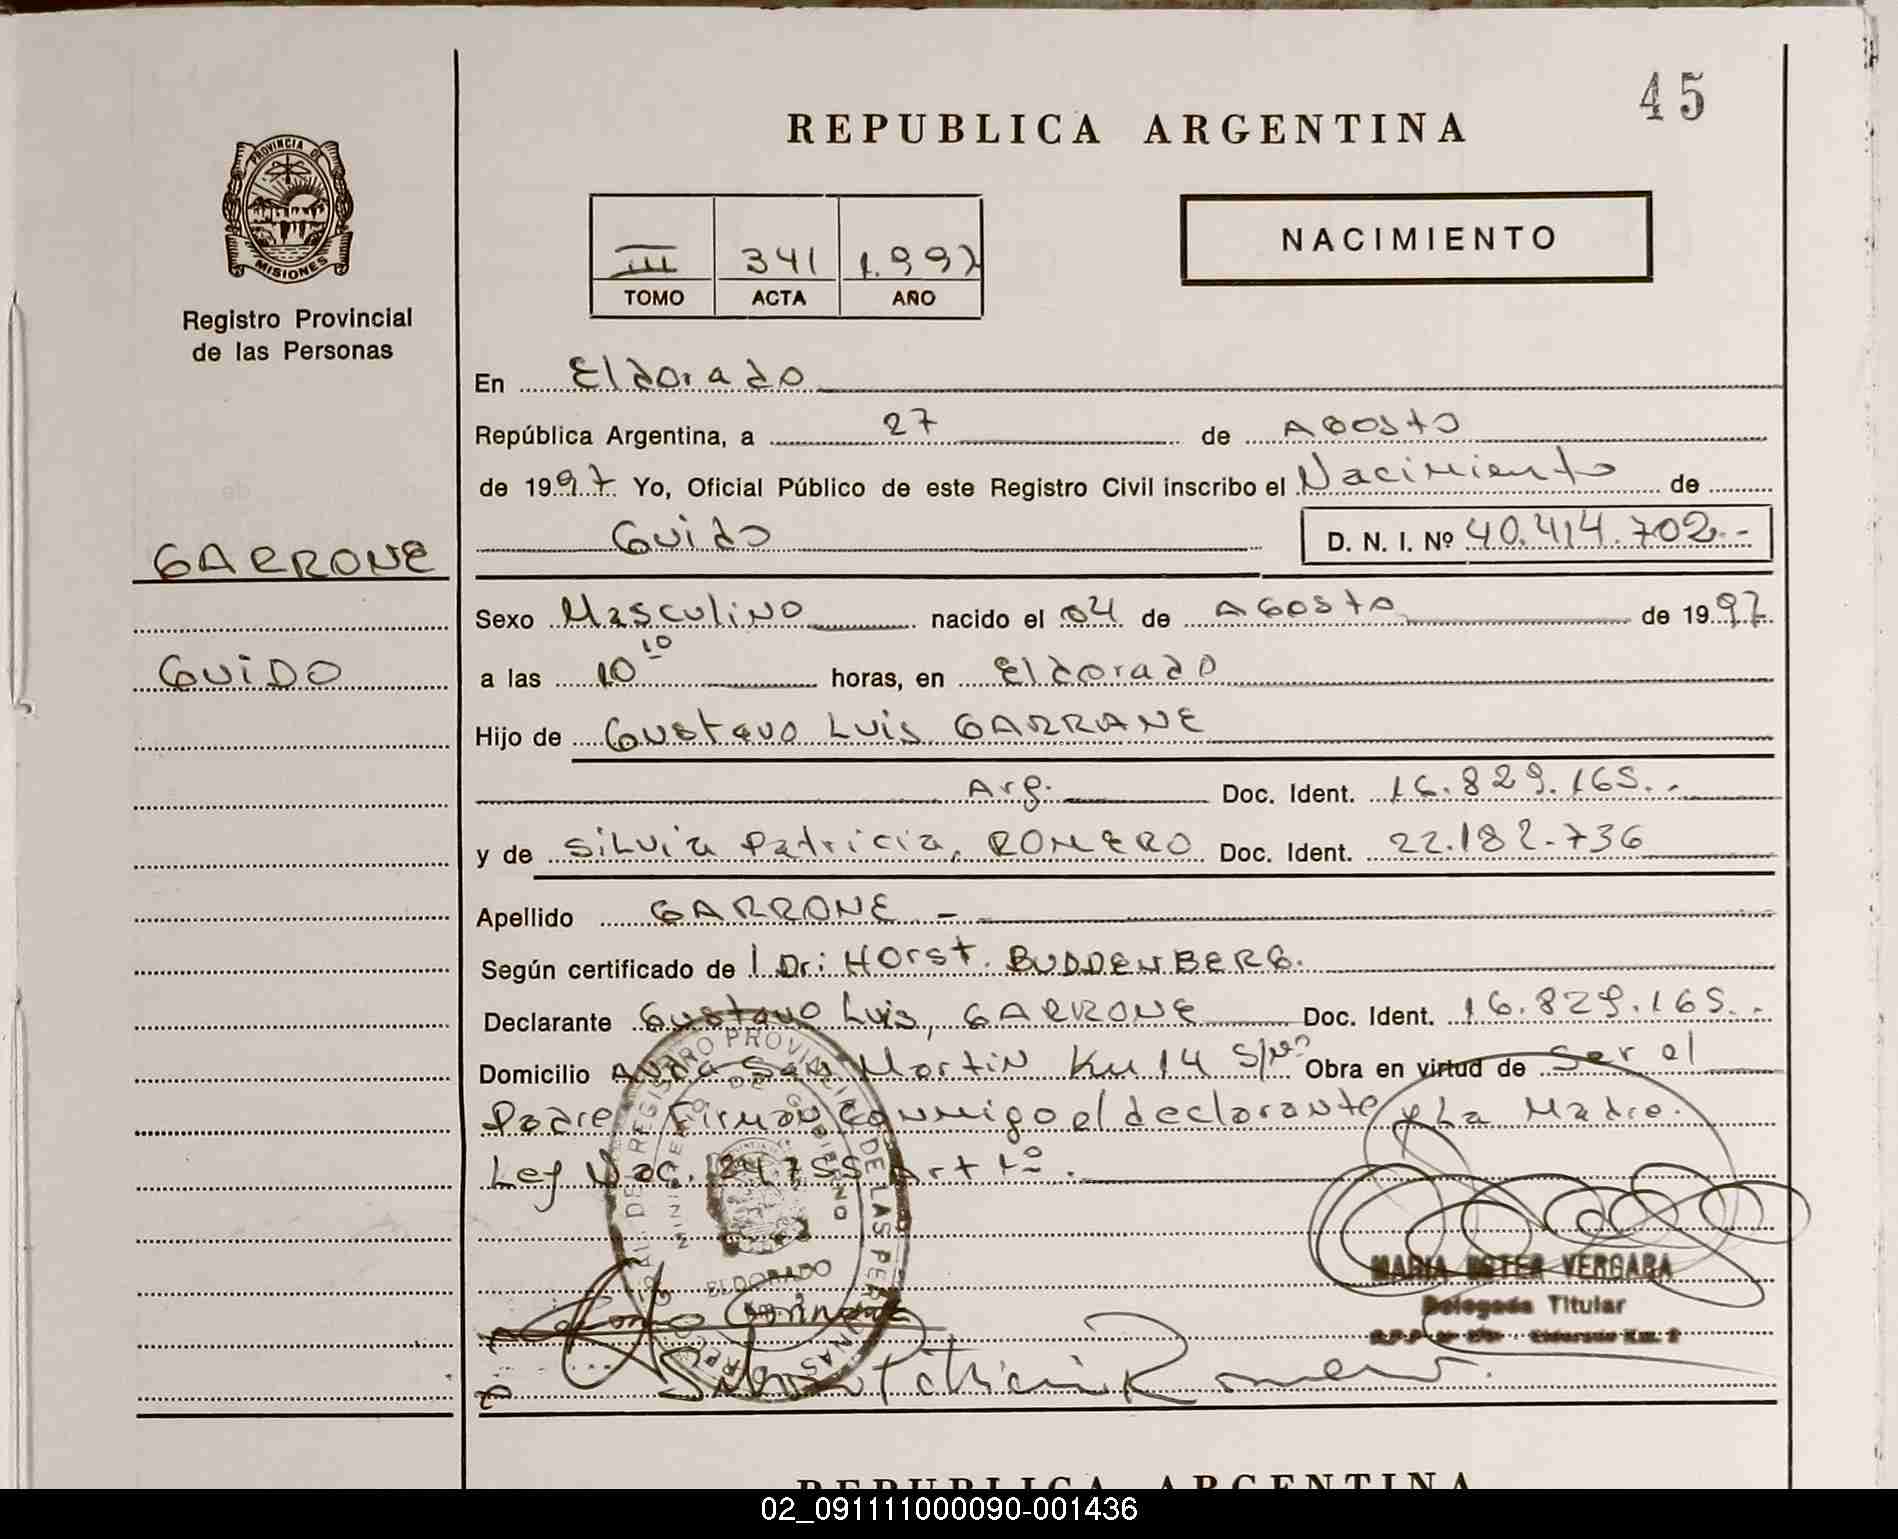 45
REPUBLICA ARGENTINA
PROVINCIA DE
MISIONES
Registro Provincial
de las Personas
III 341 1.997
TOMO ACTA AÑO
NACIMIENTO
En Eldorado
República Argentina, a 27 de Agosto
de 1997 Yo, Oficial Público de este Registro Civil inscribo el Nacimiento de
GARRONE
Guido D. N. I. Nº 40.414.702.-
Sexo Masculino nacido el 04 de Agosto de 1997
GUIDO
a las 10 10 horas, en Eldorado
Hijo de Gustavo Luis GARRANE
Arg. Doc. Ident. 16.829.165.-
y de Silvia Patricia, ROMERO Doc. Ident. 22.182.736
Apellido GARRONE -
Según certificado de l Dr: Horst. BUDDENBERG.
Declarante Gustavo Luis, GARRONE Doc. Ident. 16.829.165.-
Domicilio Avda San Martin Km 14 S/Nº Obra en virtud de Ser el
Padre. Firman conmigo el declarante y La Madre.
Ley Nac. 24.755 Art 1º.
REGISTRO PROVINCIAL DE LAS PERSONAS
MINISTERIO DE GOBIERNO
ELDORADO
MARIA ESTER VERGARA
Delegada Titular
Eldorado Km. 2
Silvia Patricia Romero.
REPUBLICA ARGENTINA
02_091111000090-001436